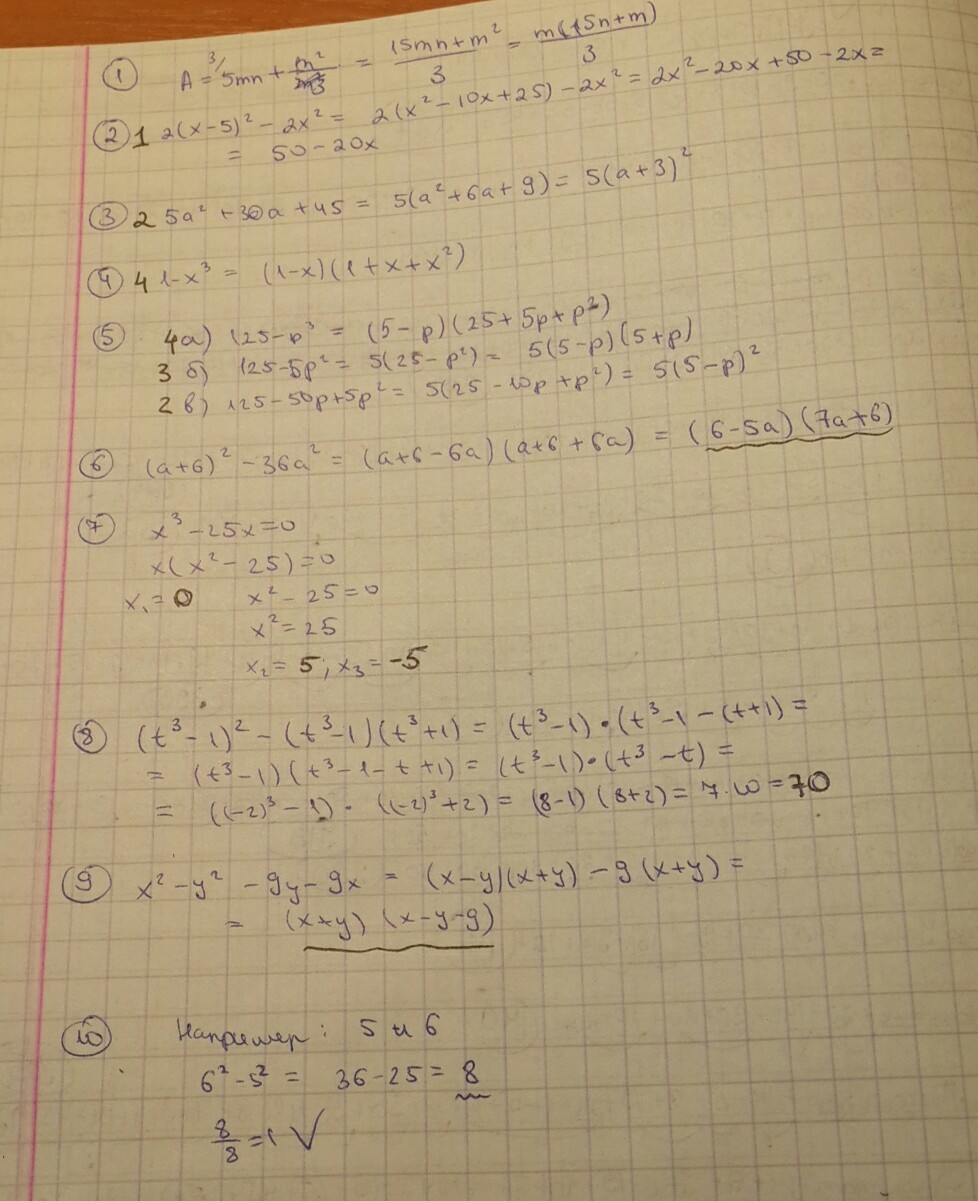 ① A = ³/ 5mn + m²/3 = (15mn+m²)/3 = m(15n+m)/3
② 1 2(x-5)² - 2x² = 2(x² - 10x + 25) - 2x² = 2x² - 20x + 50 - 2x =
= 50 - 20x
③ 2 5a² + 30a + 45 = 5(a² + 6a + 9) = 5(a+3)²
④ 4 1-x³ = (1-x)(1+x+x²)
⑤ 4 а) 125-p³ = (5-p)(25+5p+p²)
3 б) 125-5p² = 5(25-p²) = 5(5-p)(5+p)
2 в) 125-50p+5p² = 5(25-10p+p²) = 5(5-p)²
⑥ (a+6)² - 36a² = (a+6-6a)(a+6+6a) = (6-5a)(7a+6)
⑦ x³ - 25x = 0
x(x² - 25) = 0
x₁ = 0 x² - 25 = 0
x² = 25
x₂ = 5; x₃ = -5
⑧ (t³-1)² - (t³-1)(t³+1) = (t³-1)·(t³-1-(t+1) =
= (t³-1)(t³-1-t+1) = (t³-1)·(t³-t) =
= ((-2)³-1)·((-2)³+2) = (8-1)(8+2) = 7·10 = 70
⑨ x² - y² - 9y - 9x = (x-y)(x+y) - 9(x+y) =
= (x+y)(x-y-9)
⑩ Например: 5 и 6
6² - 5² = 36 - 25 = 8
8/8 = 1 √